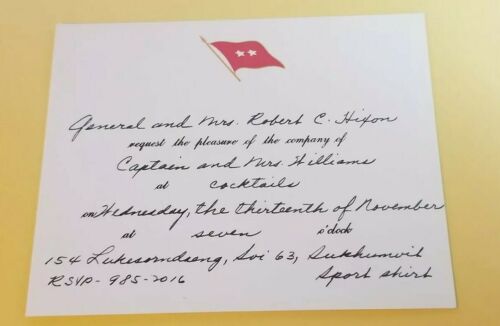 General and Mrs. Robert C. Hixon
request the pleasure of the company of
Captain and Mrs. Williams
at cocktails
on Wednesday, the thirteenth of November
at seven o'clock
154 Soi 63, Sukhumvit
RSVP- 985-2016 Sport shirt